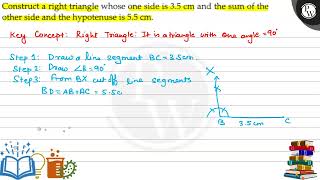 Construct a right triangle whose one side is 3.5 cm and the sum of the
other side and the hypotenuse is 5.5 cm.
Key Concept: Right Triangle: It is a triangle with one angle = 90°
Step 1: Draw a line segment BC = 3.5cm.
Step 2: Draw ∠B = 90°
Step 3: From BX cut off line segments
BD = AB + AC = 5.5c
X
B 3.5 cm C